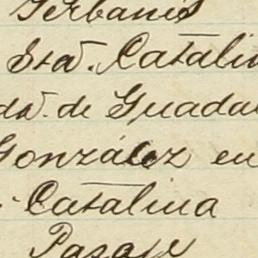 Serbanes
Sta. Catali
da. de Guadal
González en
Catalina
Pasaje